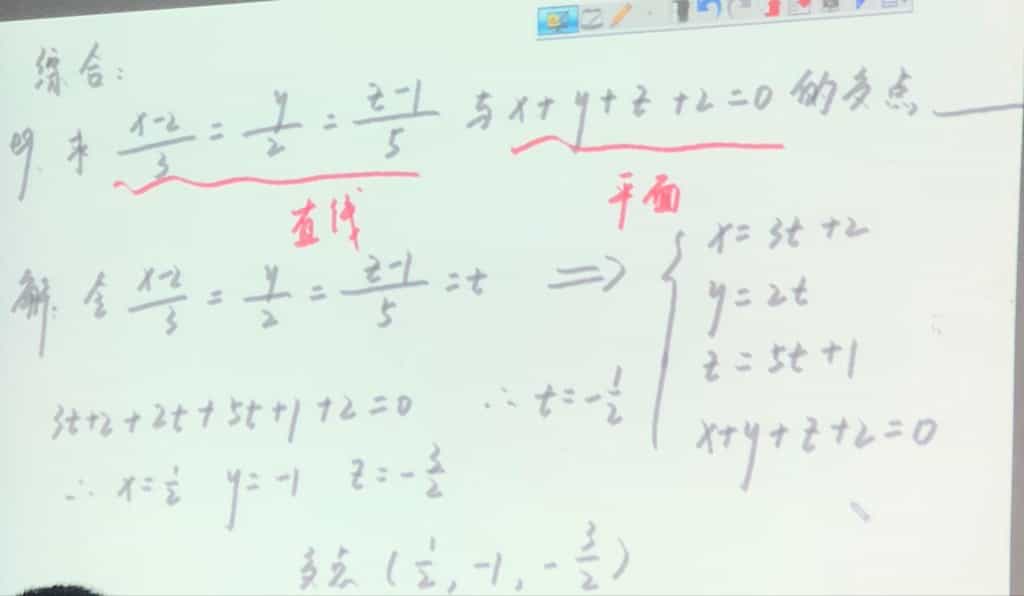 综合:
例. 求 (x-2)/3 = y/2 = (z-1)/5 与 x+y+z+2=0 的交点 ____
直线 平面
解. 令 (x-2)/3 = y/2 = (z-1)/5 = t ⟹ { x=3t+2
y=2t
z=5t+1
x+y+z+2=0
3t+2+2t+5t+1+2=0 ∴ t=-1/2
∴ x=1/2 y=-1 z=-3/2
交点 (1/2, -1, -3/2)